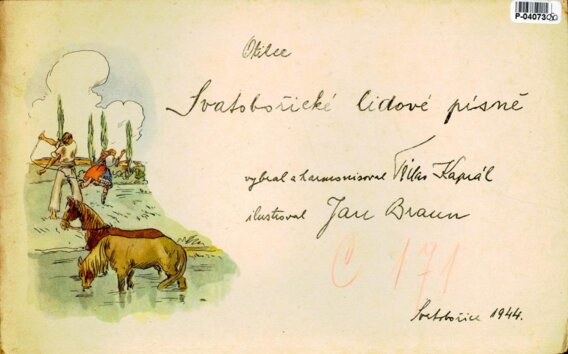 P-04073
Otilce
Svatobořické lidové písně
vybral a harmonisoval Vilém Kaprál
ilustroval Jan Braun
C 171
Svatobořice 1944.